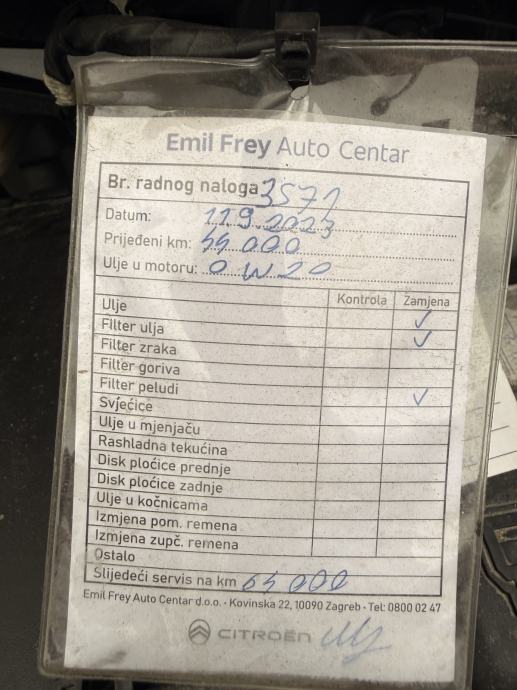 Emil Frey Auto Centar
Br. radnog naloga 3571
Datum: 11.9.2023
Prijeđeni km: 55 000
Ulje u motoru: 0W20
Kontrola Zamjena
Ulje ✓
FIlter ulja ✓
Filter zraka
Filter goriva
Filter peludi ✓
Svjećice
Ulje u mjenjaču
Rashladna tekućina
Disk pločice prednje
Disk pločice zadnje
Ulje u kočnicama
Izmjena pom. remena
Izmjena zupč. remena
Ostalo
Slijedeći servis na km 65 000
Emil Frey Auto Centar d.o.o. • Kovinska 22, 10090 Zagreb • Tel: 0800 02 47
CITROËN